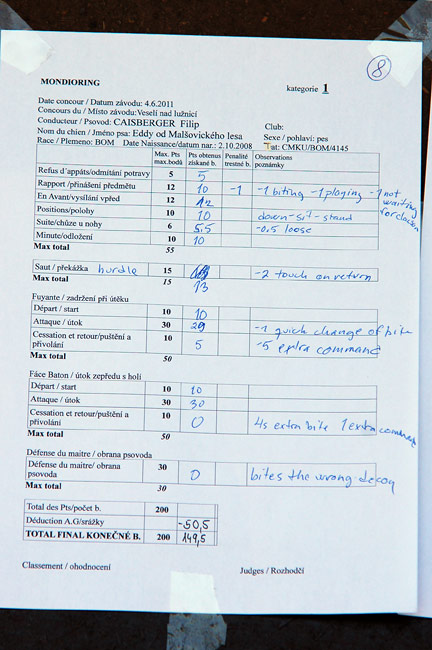 8
MONDIORING kategorie 1
Date concour / Datum závodu: 4.6.2011
Concours du / Místo závodu: Veselí nad lužnicí
Conducteur / Psovod: CAISBERGER Filip Club:
Nom du chien / Jméno psa: Eddy od Malšovického lesa Sexe / pohlaví: pes
Race / Plemeno: BOM Date Naissance/datum nar.: 2.10.2008 Tat: CMKU/BOM/4145
Max. Pts max.bodů Pts obtenus získané b. Penalité trestné b. Observations poznámky
Refus d´appâts/odmítání potravy 5 5
Rapport /přinášení předmětu 12 10 -1 -1 biting -1 playing -1 not waiting for
En Avant/vysílání vpřed 12 12
Positions/polohy 10 10 down-sit-stand
Suite/chůze u nohy 6 5.5 -0.5 loose
Minute/odložení 10 10
Max total 55
Saut / překážka hurdle 15 13 -2 touch on return
Max total 15
Fuyante / zadržení při útěku
Départ / start 10 10
Attaque / útok 30 29 -1 quick change of bite
Cessation et retour/puštění a přivolání 10 5 -5 extra command
Max total 50
Fáce Baton / útok zepředu s holí
Départ / start 10 10
Attaque / útok 30 30
Cessation et retour/puštění a přivolání 10 0 4s extra bite 1 extra command
Max total 50
Défense du maitre / obrana psovoda
Défense du maitre/ obrana psovoda 30 0 bites the wrong decoy
Max total 30
Total des Pts/počet b. 200
Déduction A.G/srážky -50,5
TOTAL FINAL KONEČNÉ B. 200 149,5
Classement / ohodnocení Judges / Rozhodčí